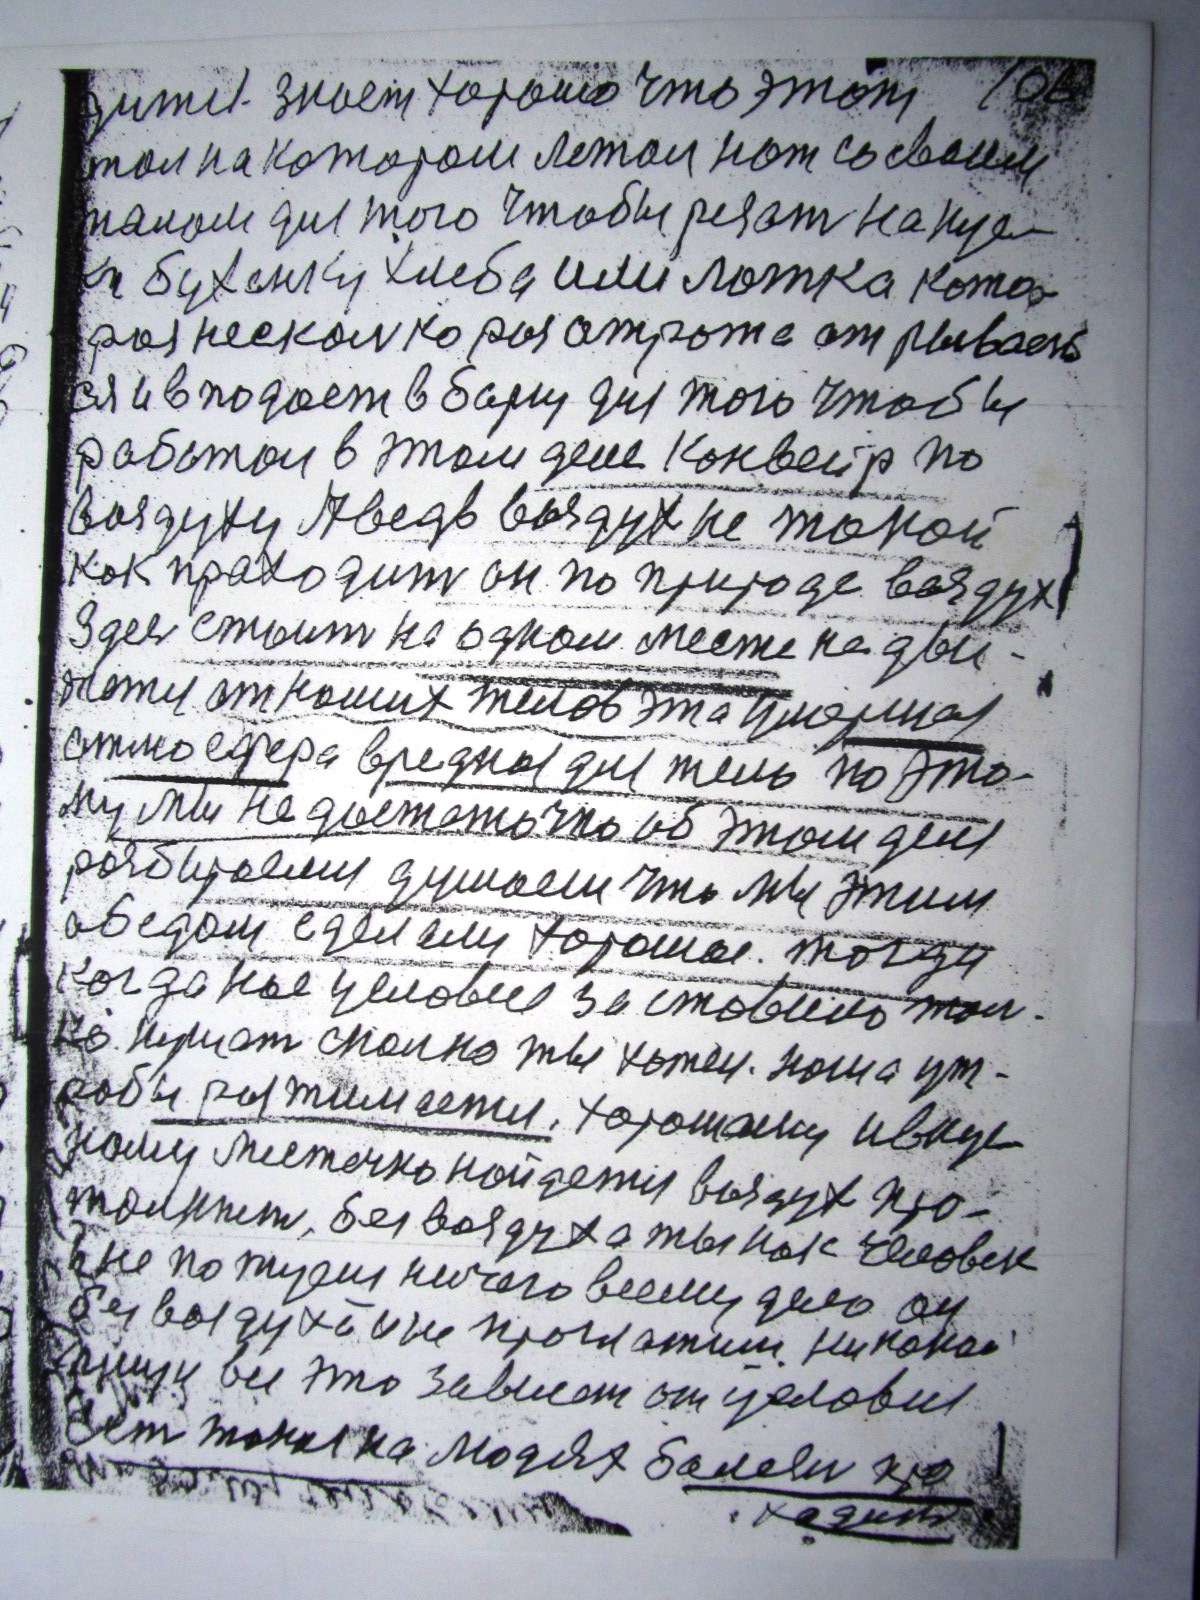 дител знает хорошо что этот 106
тол на котором летом нож со своим
талом для того чтобы резат на кус-
ки буханку хлеба или ложка кото-
рая несколко раз от рота отрываеть
ся и впадает в бари для того чтобы
работал в этом деле конвеир по
воздуху Аведь воздух не такой
как праходит он по природе воздух
Здес стоит на одном месте на ды-
жати от наших телов эта умершая
атмосефера вредная для тела по это-
му мы недостаточно об этом деле
разбираемся думаем что мы этим
обедом сделали хорошое. тогда
когда нас условие заставило тол-
ко кушат сколко ты хотеш. наша ут-
роба растягиваетя. хорошему и вкус
ному местечко найдетя воздух про-
толкнет, без воздуха ты как человек
и не пожуеш ничего всему дело он
без воздуха и не проглотиш. никакой
пищи все это зависет от условия
Ест такая на людях болезн про
ходит